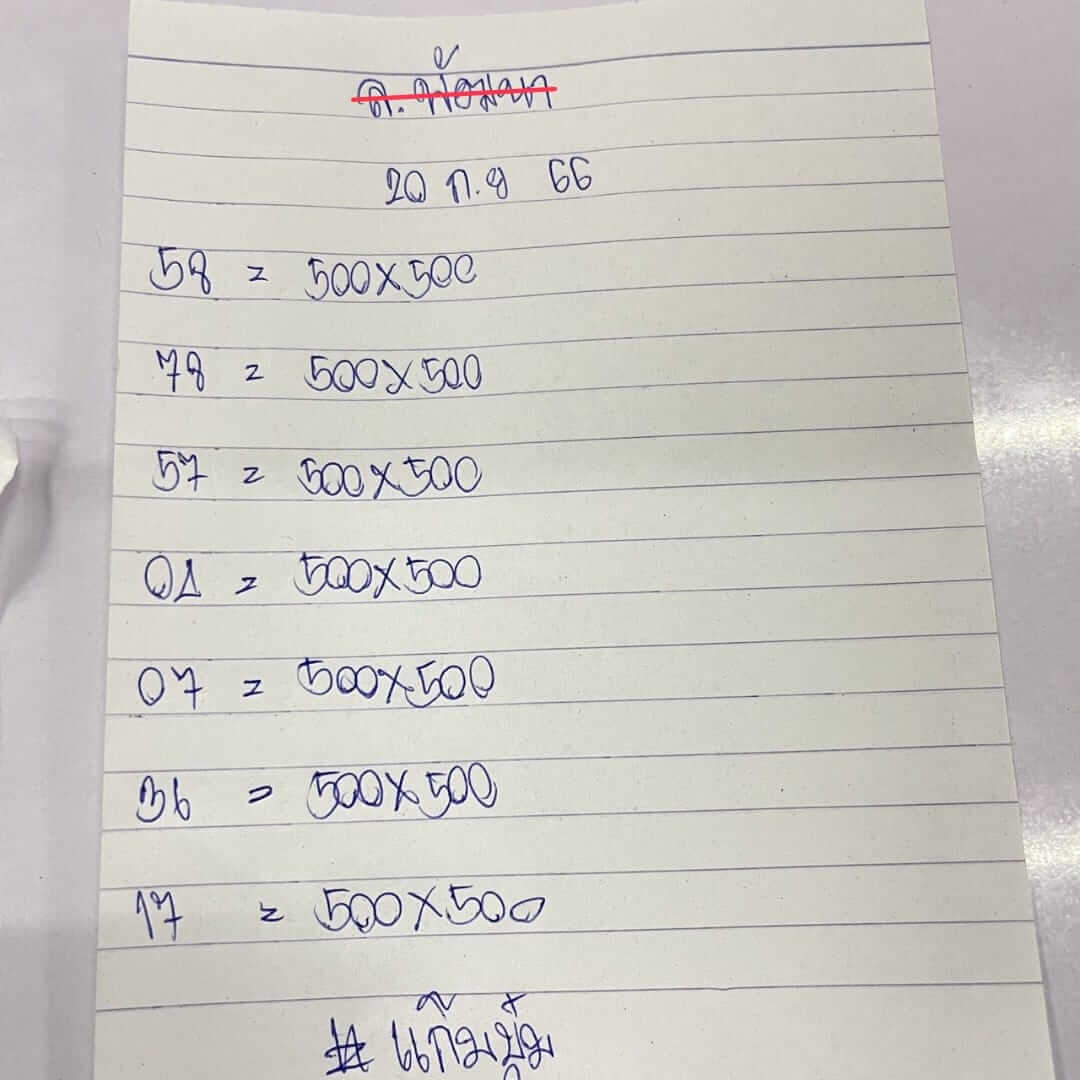 20 ก.ย 66
58 = 500x500
78 = 500x500
57 = 500x500
01 = 500x500
07 = 500x500
36 = 500x500
17 = 500x500
# แก๊มบุ๋ม